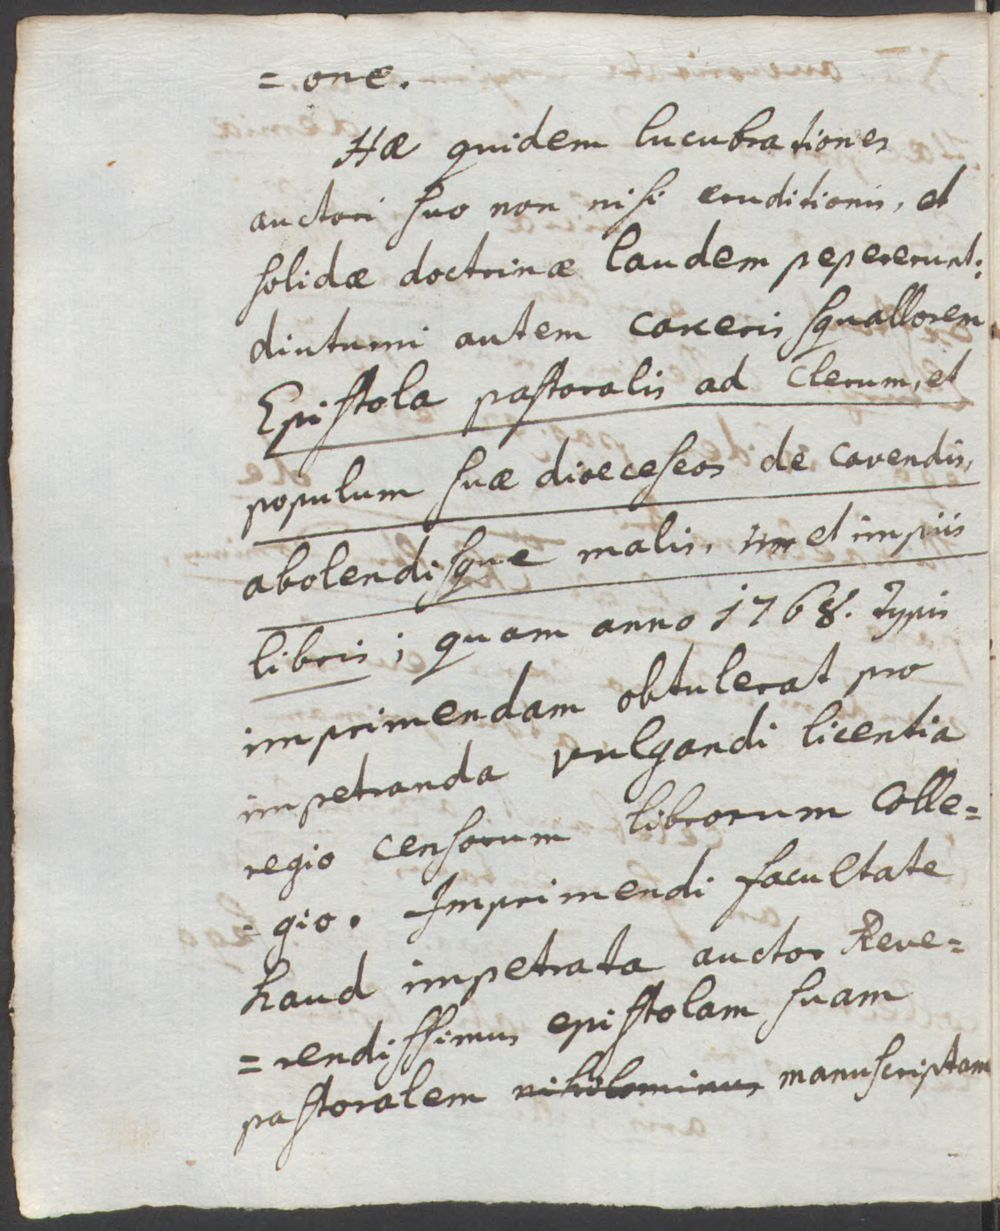 =one.
Hæ quidem lucubrationes
auctori suo non nisi eruditionis, et
solidæ doctrinæ laudem pepererunt:
diuturni autem carceris squallorem
Epistola pastoralis ad Clerum, et
populum suæ dioeceseos de cavendis,
abolendisque malis, et impiis
libris; quam anno 1768. Typis
imprimendam obtulerat pro
impetranda vulgandi licentia
regio censorum librorum Colle=
=gio. Imprimendi facultate
haud impetrata auctor Reve=
=rendissimus epistolam suam
pastoralem nihilominus manuscriptam